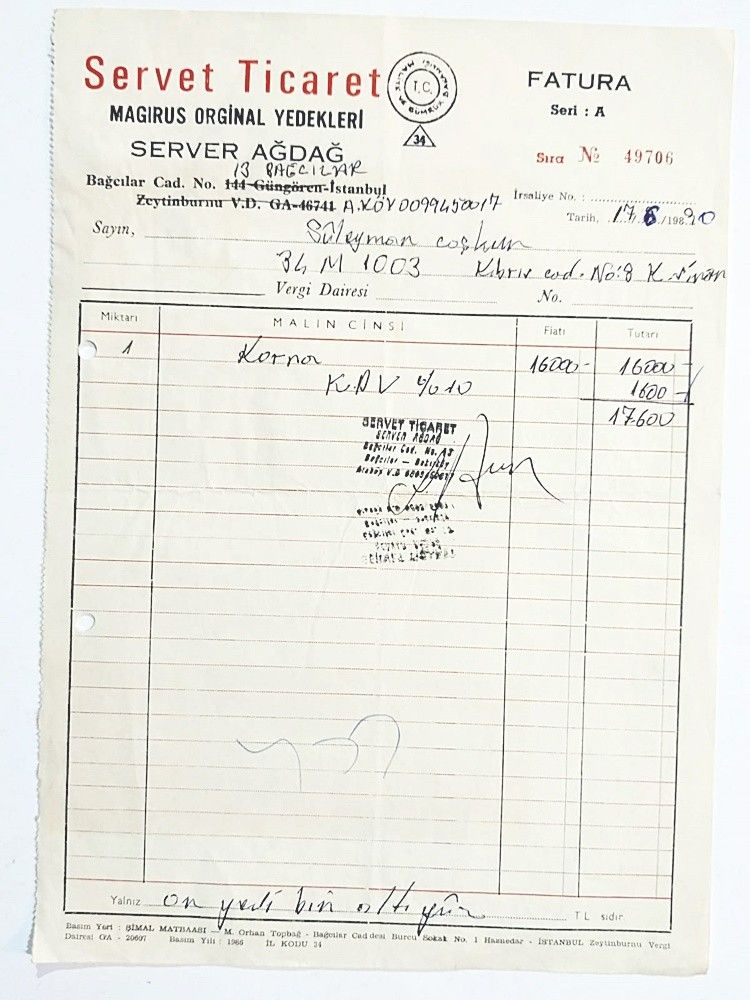 Servet Ticaret
MAGIRUS ORGİNAL YEDEKLERİ
SERVER AĞDAĞ
T.C.
MALİYE VE GÜMRÜK BAKANLIĞI
34
FATURA
Seri : A
Sıra № 49706
13 BAĞCILAR
Bağcılar Cad. No. 144 Güngören-İstanbul
Zeytinburnu V.D. GA-46741 A.KÖY 0099450017
İrsaliye No. :
Tarih, 17 6 /198 90
Sayın, Süleyman coşkun
34 M 1003 Kıbrıs cad. No:8 K.sinan
Vergi Dairesi No.
Miktarı MALIN CİNSİ Fiatı Tutarı
1 Korna 16000- 16000-
KDV %10 1600-
17.600
SERVET TİCARET
SERVER AĞDAĞ
Bağcılar Cad. No. 13
Bağcılar -
Yalnız on yedi bin altıyüz TL sıdır
Basım Yeri : BİMAL MATBAASI — M. Orhan Topbağ - Bağcılar Caddesi Burcu Sokak No. 1 Haznedar - İSTANBUL Zeytinburnu Vergi
Dairesi GA - 20697 Basım Yılı : 1986 İL KODU 34